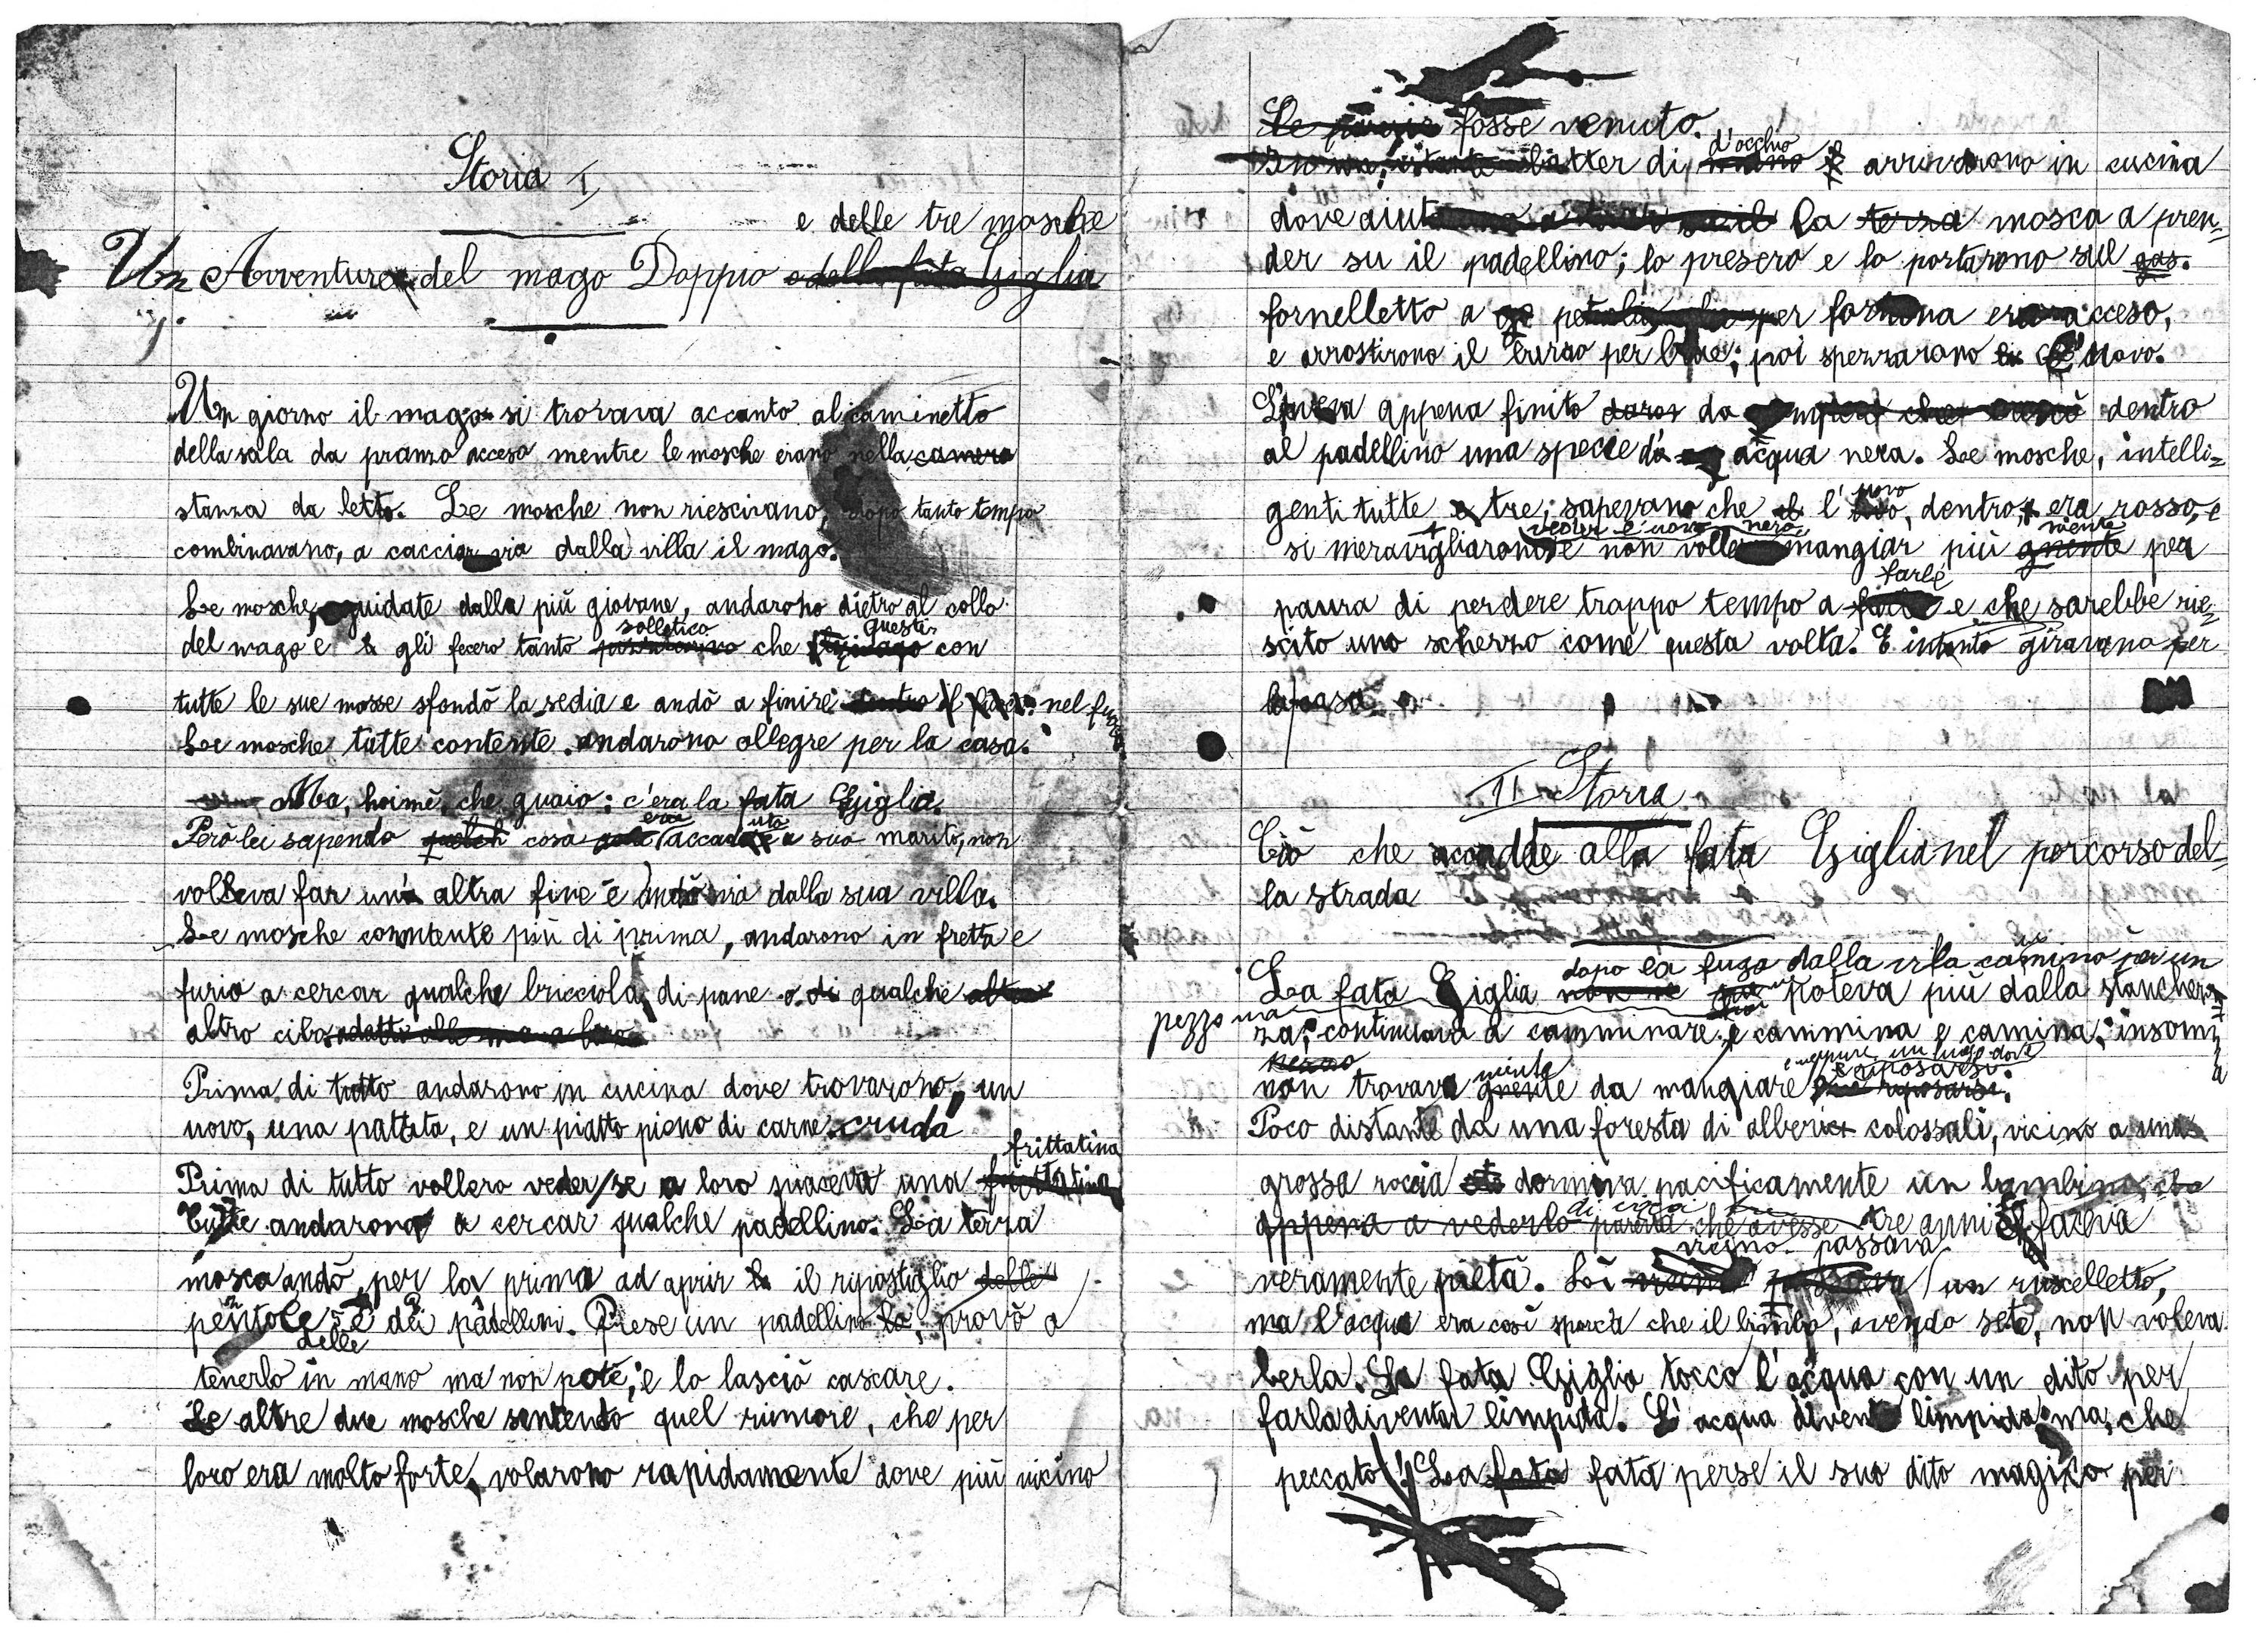 Storia I
e delle tre mosche
Un Avventura del mago Doppio e della fata Giglia
Un giorno il mago si trovava accanto al caminetto
della sala da pranzo acceso mentre le mosche erano nella camera
stanza da letto. Le mosche non riescivano, dopo tanto tempo
combinavano, a cacciar via dalla villa il mago.
Le mosche, guidate dalla più giovane, andarono dietro al collo
solletico questi
del mago e gli fecero tanto che con
tutte le sue mosse sfondò la sedia e andò a finire dentro nel fuoco.
Le mosche tutte contente andarono allegre per la casa.
Ma, hoimè, che guaio: c'era la fata Giglia.
era uto
Però lei sapendo cosa accad a suo marito, non
volleva far un'altra fine e andò via dalla sua villa.
Le mosche conntente più di prima, andarono in fretta e
furia a cercar qualche bricciola di pane o di qualche altro
altro cibo
Prima di tutto andarono in cucina dove trovarono un
uovo, una pattata, e un piatto pieno di carne cruda
frittatina
Prima di tutto vollero veder se a loro piaceva una frittatina
Tutte andarono a cercar qualche padellino. La terza
mosca andò, per la prima ad aprir la il ripostiglio delle
pentole e dei padellini. Prese un padellino lo, provò a
delle
tenerlo in mano ma non potè, e lo lasciò cascare.
Le altre due mosche sentendo quel rumore, che per
loro era molto forte, volarono rapidamente dove più vicino
fosse venuto.
d'occhio
In un batter di arrivarono in cucina
dove aiut la terza mosca a pren=
der su il padellino; lo presero e lo portarono sul gas.
fornelletto a per fortuna era acceso,
e arrostirono il burro per bene; poi spezzarono l'uovo.
L'aveva appena finito da dentro
al padellino una specie di acqua nera. Le mosche, intelli=
uovo
genti tutte e tre, sapevano che l' dentro, era rosso, e
veder l'uovo nero, niente
si meravigliarono e non volle mangiar più gnente per
farle
paura di perdere troppo tempo a e che sarebbe rie=
scito uno scherzo come questa volta. E intanto giravano per
la casa
II Storia
Ciò che accadde alla fata Giglia nel percorso del=
la strada
dopo la fuga dalla villa caminò per un
La fata Giglia poteva più dalla stanchez
pezzo ma
za, continuava a camminare e cammina e camina, insomma
niente neppure un luogo dove
non trovava gnente da mangiare riposarsi.
Poco distante da una foresta di alberi colossali, vicino a una
grossa roccia dormiva pacificamente un bambino, che
di circa tre
appena a vederlo pareva che avesse tre anni e faceva
vicino passava
veramente pietà. Lì un ruscelletto,
ma l'acqua era così sporca che il bimbo, avendo sete, non voleva
berla. La fata Giglia tocco l'acqua con un dito per
farla diventar limpida. L'acqua divent limpida ma, che
peccato! La fata fata perse il suo dito magico per